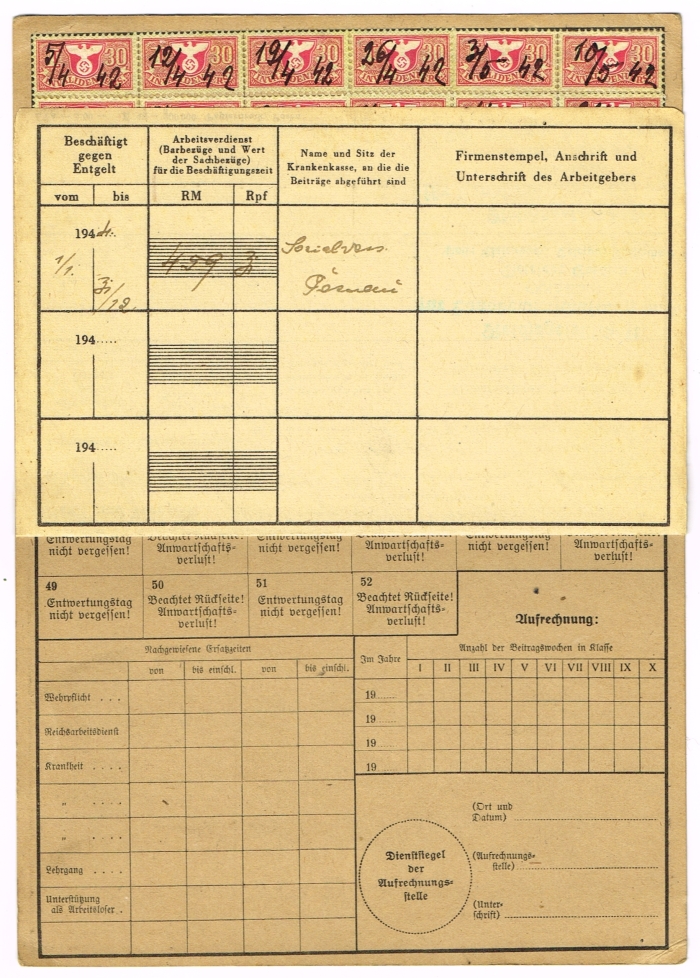 5/4 42 12/4 42 19/4 42 26/4 42 3/5 42 10/5 42
30 30 30 30 30 30
INVALIDEN INVALIDEN INVALIDEN INVALIDEN INVALIDEN INVALIDEN
Beschäftigt
gegen
Entgelt
vom bis
Arbeitsverdienst
(Barbezüge und Wert
der Sachbezüge)
für die Beschäftigungszeit
RM Rpf
Name und Sitz der
Krankenkasse, an die die
Beiträge abgeführt sind
Firmenstempel, Anschrift und
Unterschrift des Arbeitgebers
194
1/1.
/12.
499
194.....
194.....
Entwertungstag
nicht vergessen!
Beachtet Rückseite!
Anwartschafts-
verlust!
Entwertungstag
nicht vergessen!
Beachtet Rückseite!
Anwartschafts-
verlust!
Entwertungstag
nicht vergessen!
Beachtet Rückseite!
Anwartschafts-
verlust!
49
Entwertungstag
nicht vergessen!
50
Beachtet Rückseite!
Anwartschafts-
verlust!
51
Entwertungstag
nicht vergessen!
52
Beachtet Rückseite!
Anwartschafts-
verlust!
Aufrechnung:
Nachgewiesene Ersatzzeiten
von bis einschl. von bis einschl.
Wehrpflicht . . .
Reichsarbeitsdienst
Krankheit . . . .
„ . . . .
„ . . . .
Lehrgang . . . .
Unterstützung
als Arbeitsloser .
Im Jahre
Anzahl der Beitragswochen in Klasse
I II III IV V VI VII VIII IX X
19......
19......
19......
19......
Dienstsiegel
der
Aufrechnungs-
stelle
(Ort und
Datum)
(Aufrechnungs-
stelle)
(Unter-
schrift)